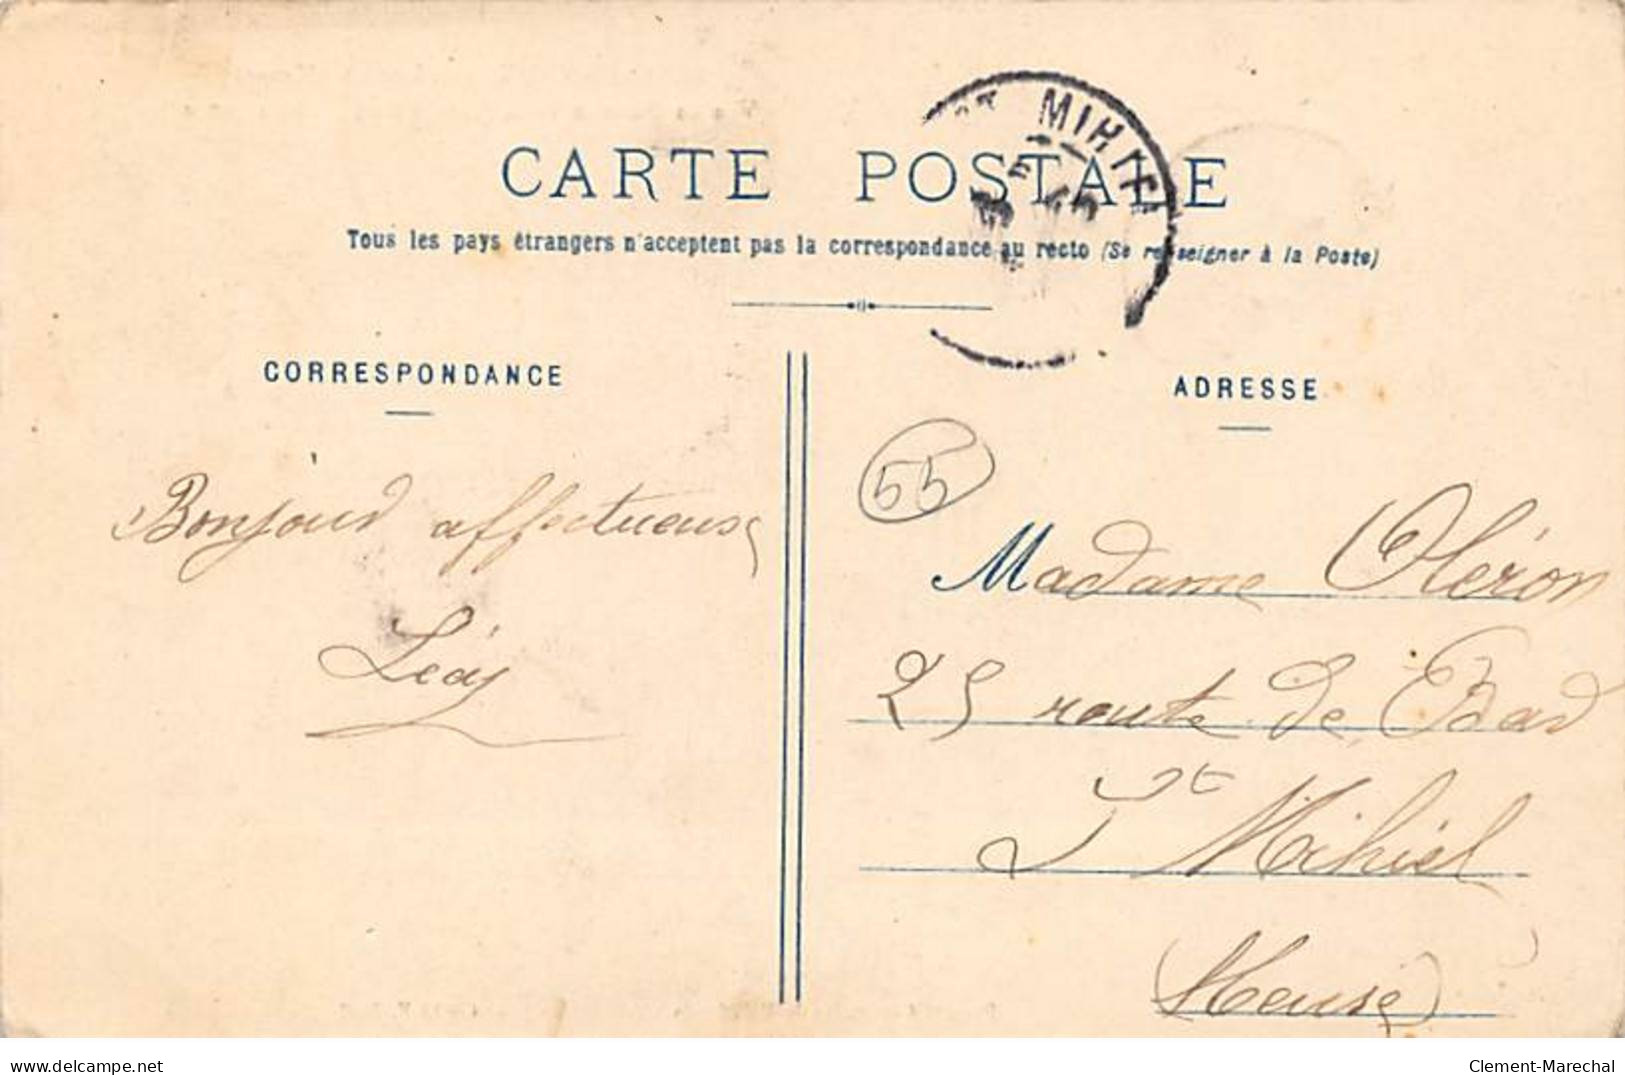 CARTE POSTALE
Tous les pays étrangers n'acceptent pas la correspondance au recto (Se renseigner à la Poste)
MIHIEL
CORRESPONDANCE
ADRESSE
55
Bonjour affectueux
Léa
Madame Oléron
25 route de Bar
St Mihiel
(Meuse)
delcampe.net
Clement-Marechal